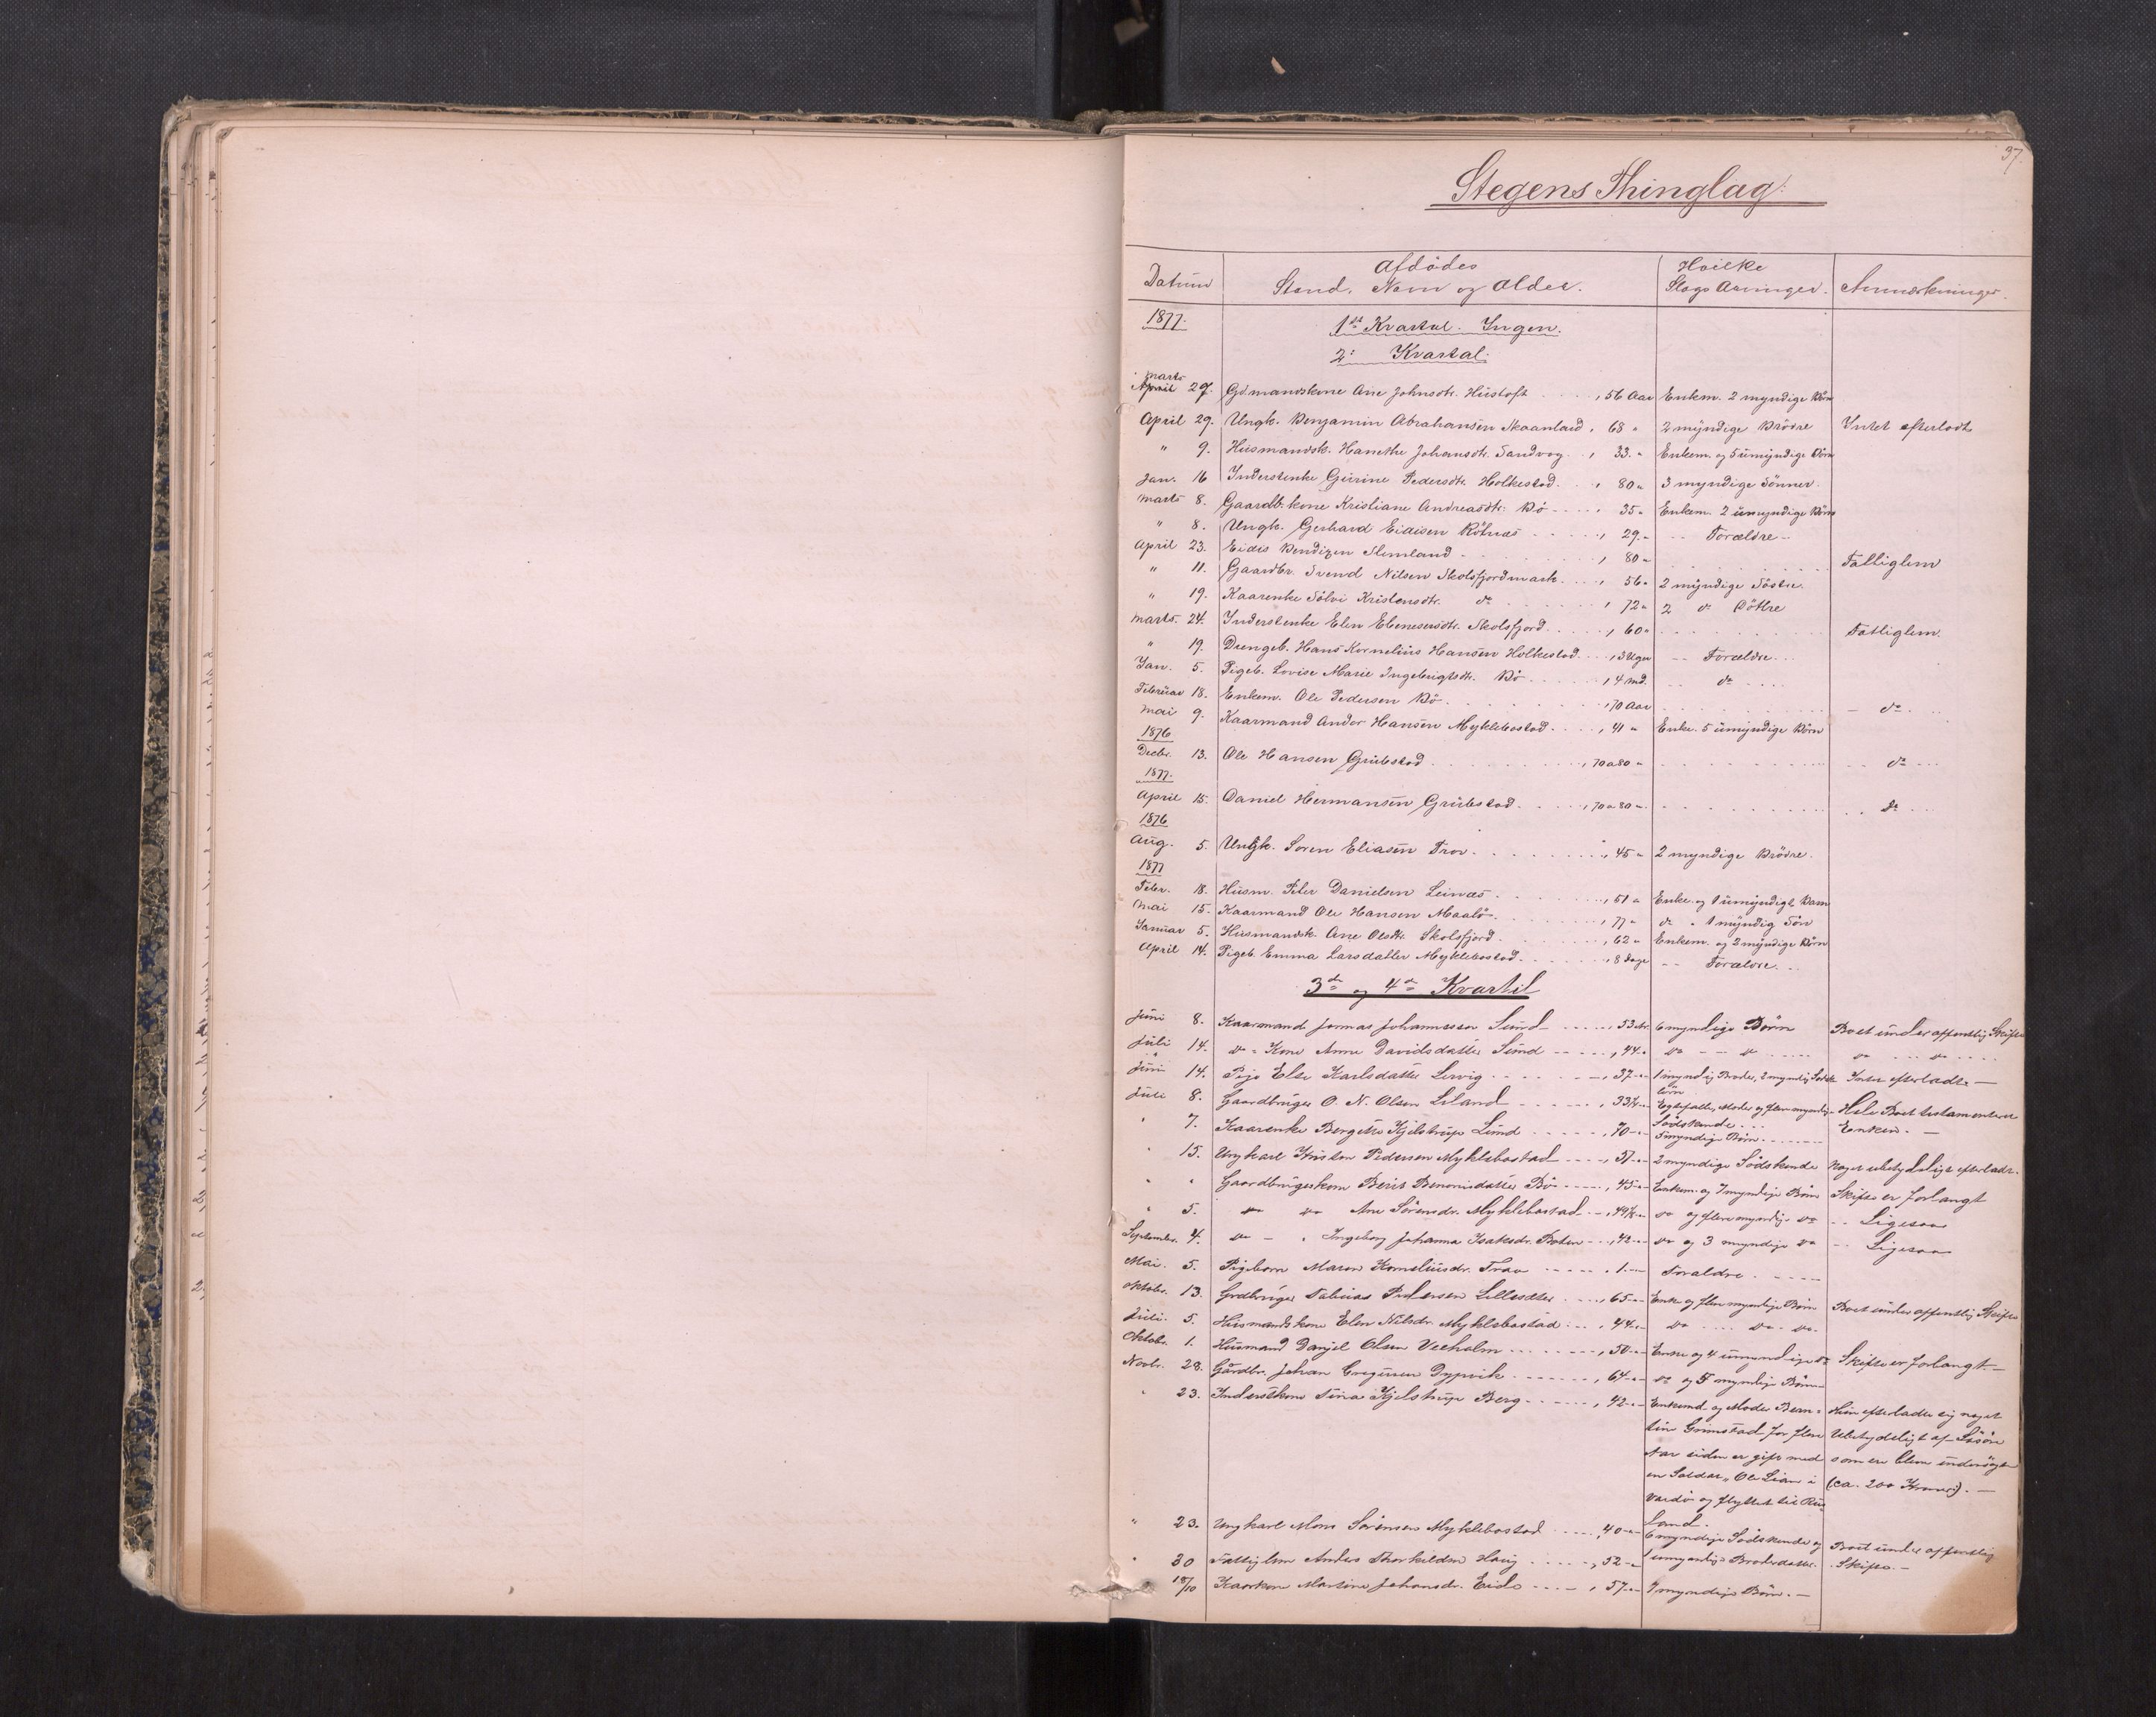 37.
Stegens Thinglag.
Datum Afdødes Stand, Navn og Alder. Hvilke Slags Arvinger. Anmærkninger.
1877. 1ste Kvartal. Ingen.
2: Kvartal.
Marts
April 27. Gdmandskone Ane Johnsdtr. Hustoft , 56 Aar Enkem. 2 myndige Børn
April 29. Ungk. Benjamin Abrahamsen Skaanland , 68 " 2 myndige Brødre Intet efterladt
" 9. Husmandsk. Hanethe Johansdtr. Sandvog , 33. " Enkem. og 5 umyndige Børn
Jan. 16 Inderstenke Gurine Pedersdtr. Holkestad , 80 " 3 myndige Sønner.
Marts 8. Gaardb. kone Kristiane Andreasdtr. Bø , 35 " Enkem. 2 umyndige Børn
" 8. Ungk. Gerhard Eidisen Røtnæs , 29. " Forældre
April 23. Eidis Bendixen Slemland , 80 " Fattiglem
" 11. Gaardbr. Svend Nilsen Skolsfjordmark , 56 " 2 myndige Søstre.
" 19. Kaarenke Sølvi Kristensdtr. do , 72 " 2 do Døttre
Marts. 24. Inderstenke Elen Ebenesersdtr. Skolsfjord , 60 " Fattiglem.
" 19. Drengeb. Hans Kornelius Hansen Holkestad , 3 Uger Forældre
Jan. 5. Pigeb. Lovise Marie Ingebrigtsdtr. Bø , 4 md. do
Februar 18. Enkem. Ole Pedersen Bø , 70 Aar do
Mai 9. Kaarmand Andor Hansen Myklebostad , 41 " Enke. 5 umyndige Børn
1876
Decbr. 13. Ole Hansen Grubstad , 70 a 80 " do
1877.
April 15. Daniel Hermansen Grubstad , 70 a 80 " do
1876
Aug. 5. Ungk. Soren Eliasen Trov , 45 " 2 myndige Brødre.
1877
Febr. 18. Husm. Peter Danielsen Leinæs , 51 " Enke. og 1 umyndigt Barn
Mai 15. Kaarmand Ole Hansen Maalø , 77 " do " 1 myndig Søn
Januar 5. Husmandsk. Ane Olsdtr. Skolsfjord , 62 " Enkem. og 2 myndige Børn
April 14. Pigeb. Emma Larsdatter Myklebostad , 8 Dage Forældre.
3de og 4de Kvartil
Juni 8. Kaarmand Jonas Johannessen Sund , 53 Ar. 6 myndige Børn Boet under offentlig Skifte
Juli 14. do " Kone Anne Davidsdatter Sund , 44 " do do do do
Juni 14. Pige Else Karlsdatter Lervig , 37 " 1 myndig Broder, 2 myndig Intet efterladt
Juli 8. Gaardbruger O. N. Olsen Leland , 33½ " Moder og flere myndig Hele Boet testamenteret
Sødskende Enken.
" 7. Kaarenke Bergette Kjelstrup Lund , 70 " 5 myndige Børn
" 15. Ungkarl Kristen Pedersen Myklebostad , 37 " 2 myndige Sødskende Noget ubetydeligt efterladt.
" " Gaardbrugerkone Berit Benonisdatter Bø , 45 " Enkem. og 7 myndige Børn Skifte er forlangt
" 5. do do Ane Sørensdr. Myklebostad , 49½ " do og flere myndig do Ligesaa
September 4. do " Ingeborg Johanna Isaksdr. Boten , 42 " do og 3 myndige do Ligesaa
Mai. 5. Pigebarn Maren Korneliusdr. Trav , 1 " Foraldre
Oktobr. 13. Grdbruger Tobias Pedersen , 65 " Enke og flere myndige Børn Boet under offentlig Skifte
Juli. 5. Husmandskone Elen Nilsdr. Myklebostad , 44 " do do do
Oktobr. 1. Husmand Danjel Olsen Veeholm , 50 " Enke og 4 umyndige do Skifte er forlangt
Novbr. 28. Gårdbr. Johan Gregersen Dypvik , 64 " do og 5 myndige Børn
" 23. Inderstkone Sina Kjelstrup Berg , 42 " Enkemd og Moder Bern= Hun efterlader sig noget
tin Grimstad for flere Ubetydeligt af Løsøre
Aar siden er gift med som er blevne undersøgt
en Soldat, Ole Lian i (ca. 200 Kroner).
Vardø og flyttet til Rus
land.
" 23. Ungkarl Mons Sørensen Myklebostad , 40 " 6 myndige Sødskende og Boet under offentlig
1 umyndig Broderdatter. Skifte.
" 30 Fattiglem Anders Thorkildsen Haug , 52 "
18/10 Kaarkone Martine Johansdr. Eide , 57 " 7 myndige Børn.